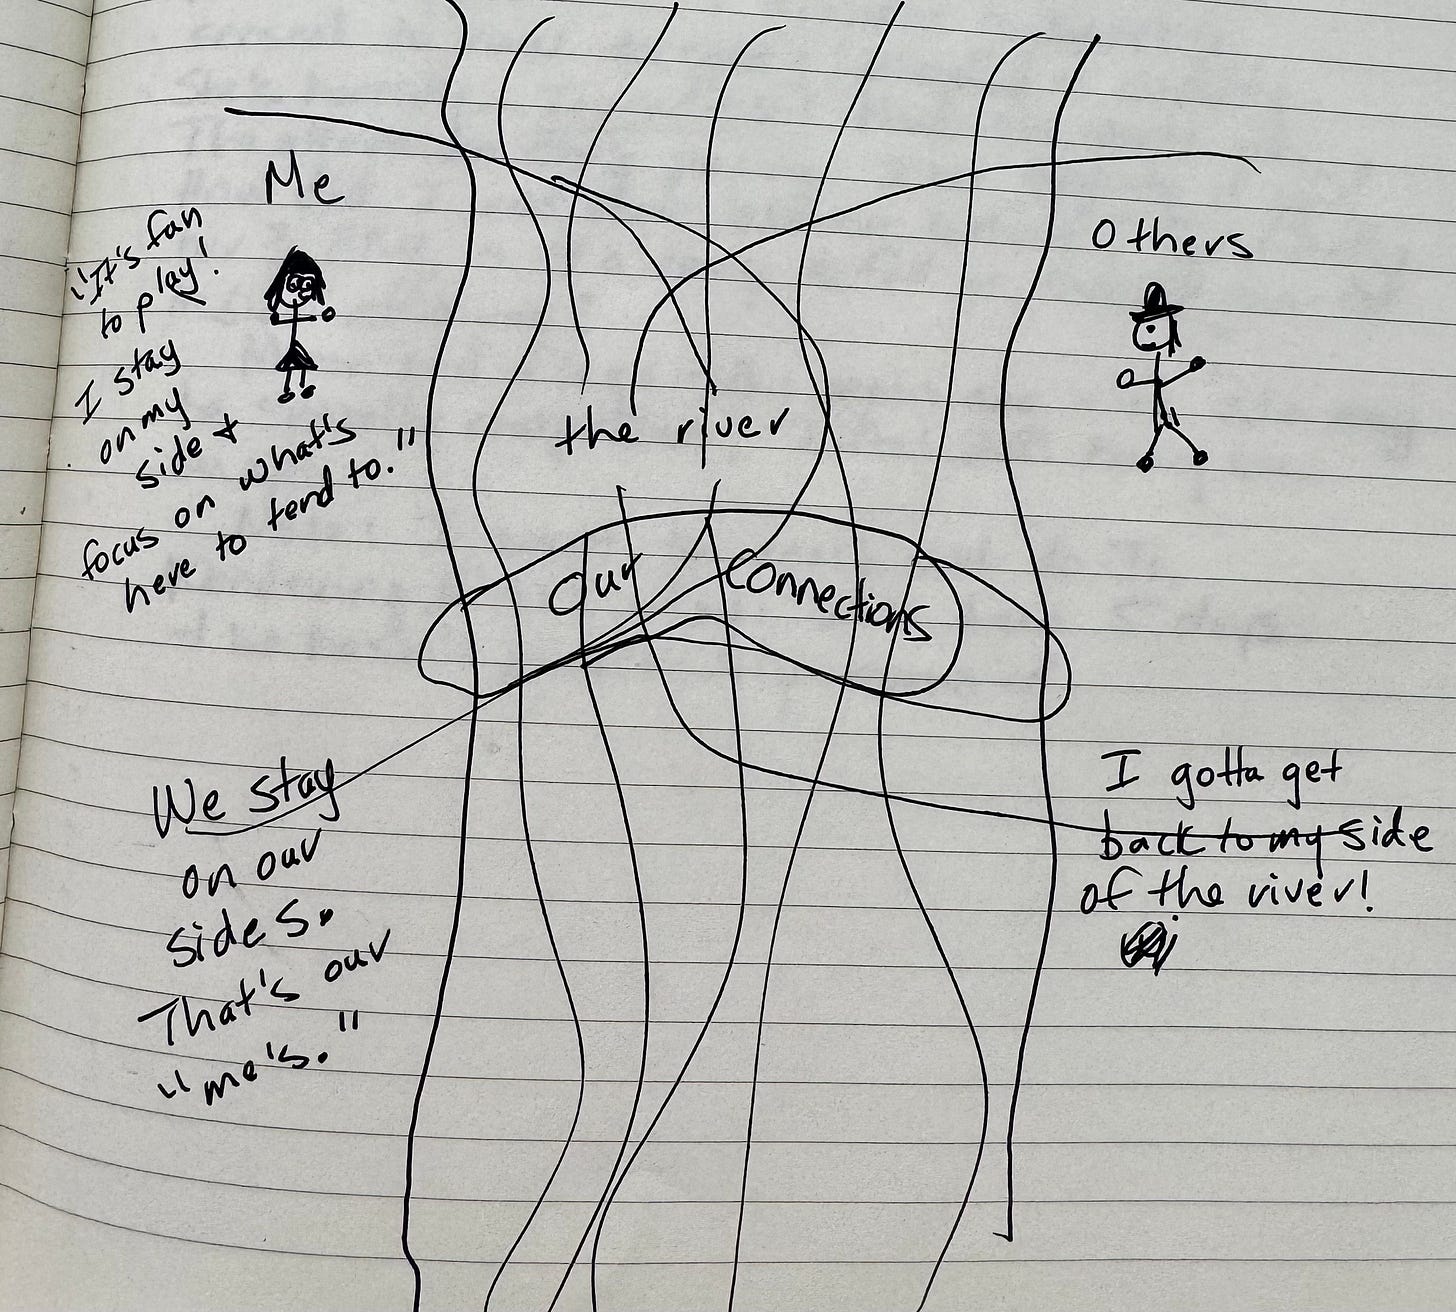 Me
"It's fun
to play!
I stay
on my
side +
focus on what's
here to tend to."
Others
the river
Our Connections
We stay
on our
sides.
That's our
"me's."
I gotta get
back to my side
of the river!